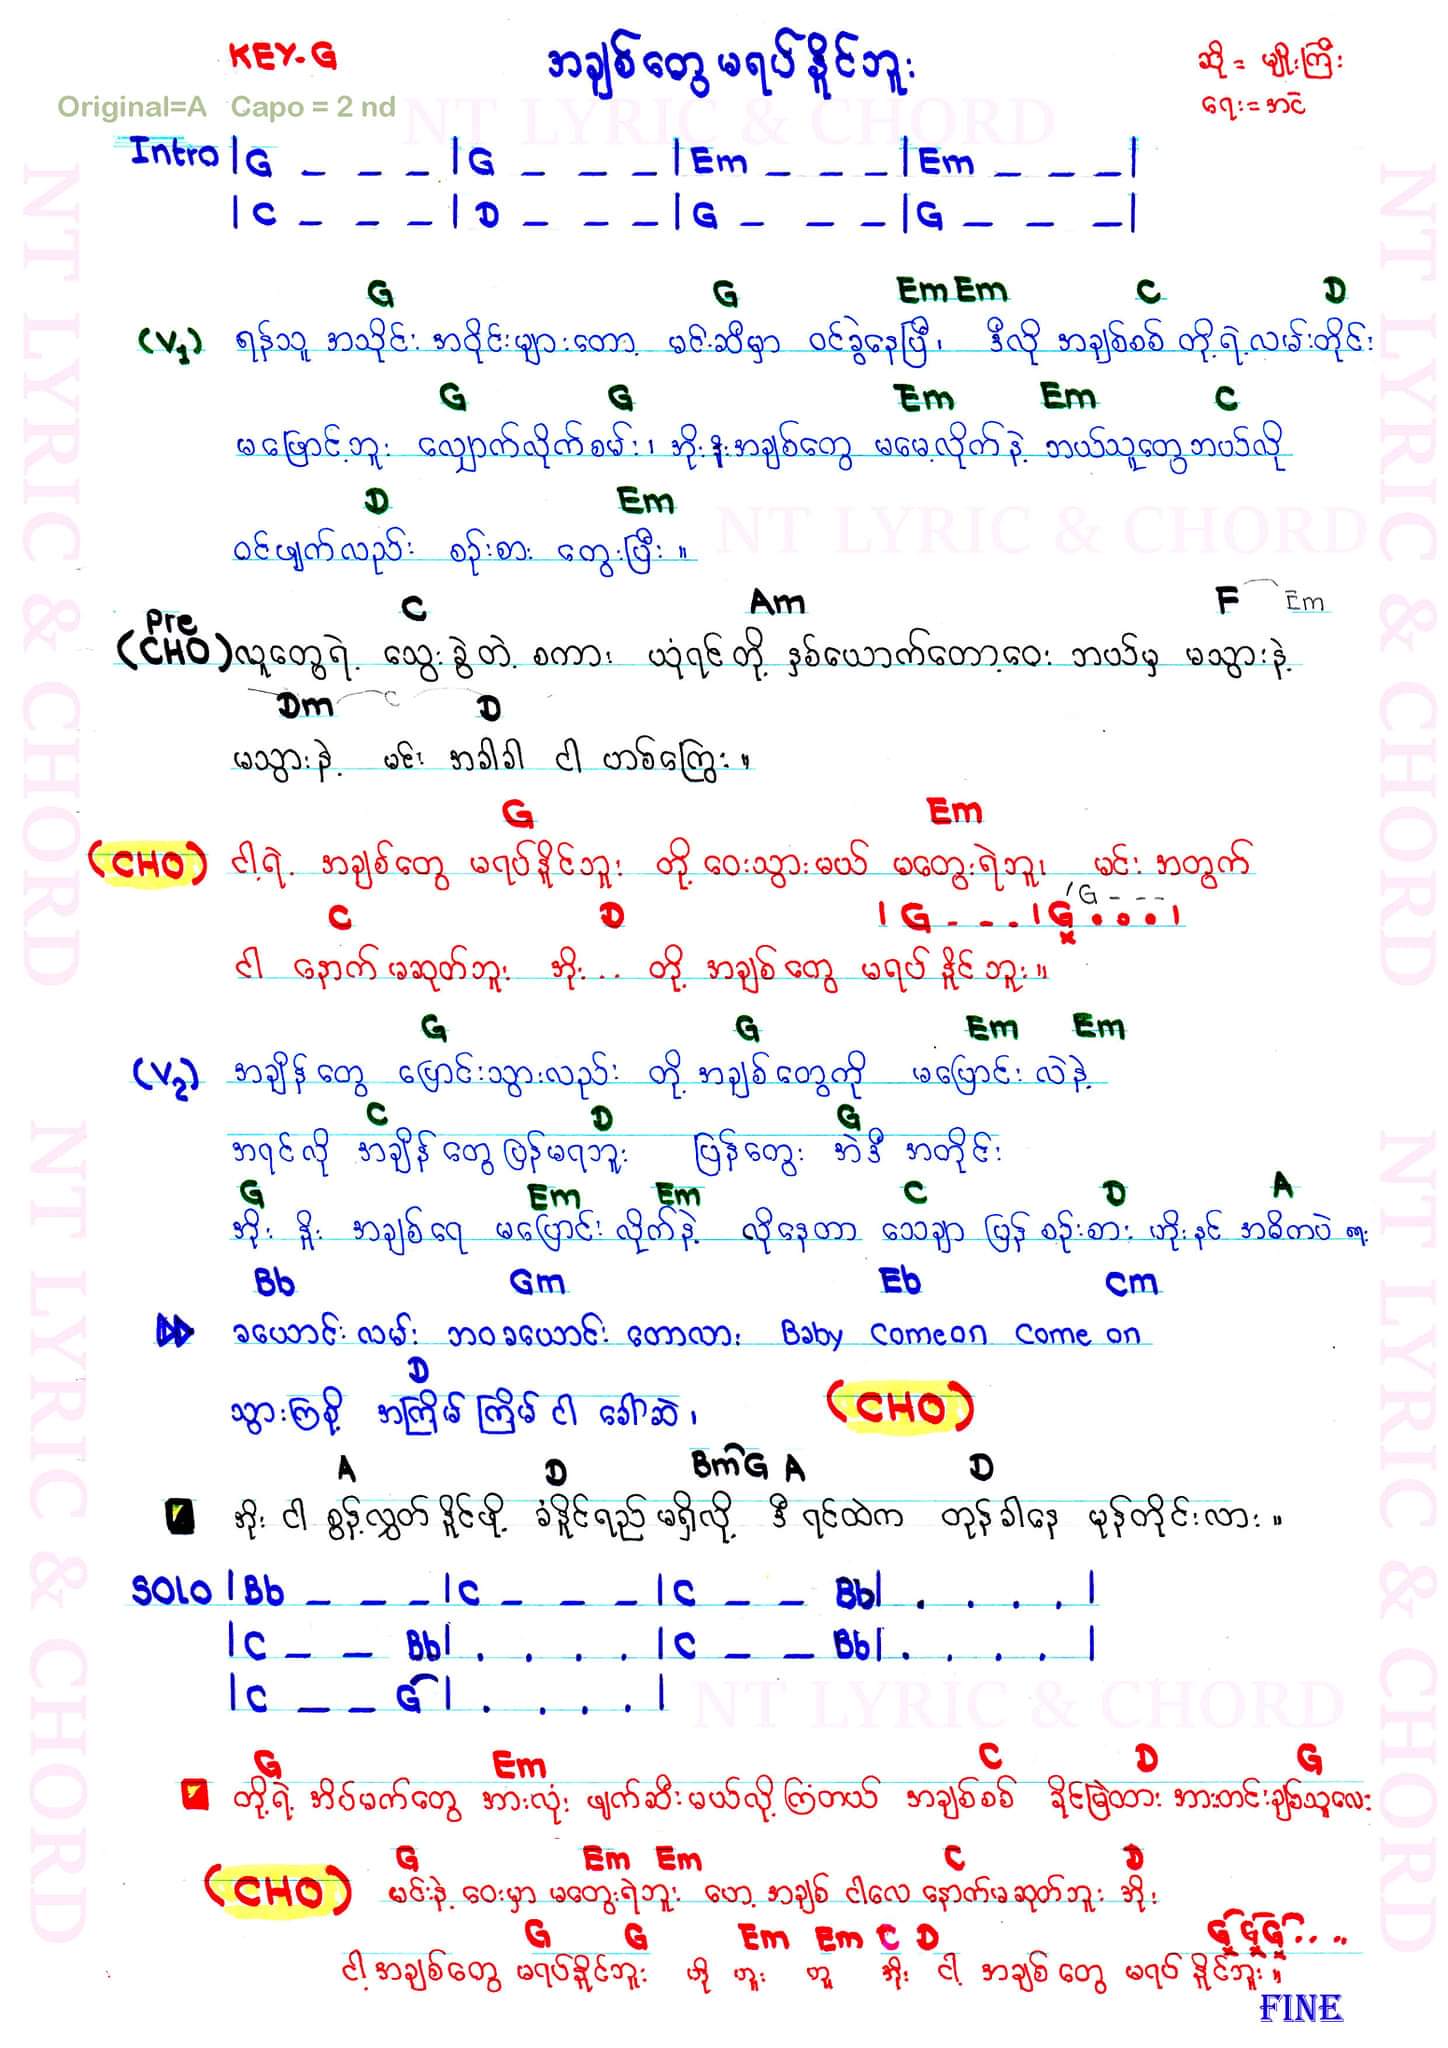 KEY-G
အချစ်တွေ မရပ်နိူင်ဘူး
ဆို = မျိုးကြီး
Original=A Capo = 2 nd
ရေး = အငဲ
NT LYRIC & CHORD
Intro |G _ _ _ |G _ _ _ |Em _ _ _ |Em _ _ _|
|C _ _ _ | D _ _ _ |G _ _ _ |G _ _ _|
G G Em Em C D
(V1) ရန်သူ အသိုင်း အဝိုင်းများတော့ မင်းဆီမှာ ဝင်ခွဲနေပြီ၊ ဒီလို အချစ်စစ် တို့ရဲ့လမ်းတိုင်း
G G Em Em C
မဖြောင့်ဘူး လျှောက်လိုက်စမ်း၊ အိုးနူးအချစ်တွေ မမေ့လိုက်နဲ့ ဘယ်သူတွေဘယ်လို
D Em
ဝင်ဖျက်လည်း စဉ်းစား တွေးပြီး။
NT LYRIC & CHORD
C Am F Em
(Pre CHO) လူတွေရဲ့ သွေးခွဲတဲ့ စကား ယုံရင်တို့ နှစ်ယောက်တော့ဝေး ဘယ်မှ မသွားနဲ့
Dm C D
မသွားနဲ့ မင်း အခါခါ ငါ ဟစ်ကြွေး။
G Em
(CHO) ငါ့ရဲ့ အချစ်တွေ မရပ်နိူင်ဘူး တို့ ဝေးသွားမယ် မတွေးရဲဘူး၊ မင်း အတွက်
C D |G - - - |G . . . |
G - - -
ငါ နောက်မဆုတ်ဘူး အိုး.. တို့ အချစ်တွေ မရပ် နိူင်ဘူး။
G G Em Em
(V2) အချိန်တွေ ပြောင်းသွားလည်း တို့ အချစ်တွေကို မပြောင်းလဲနဲ့
C D G
အရင်လို အချိန်တွေ ပြန်မရဘူး ပြန်တွေး အဲဒီ အတိုင်း
G Em Em C D A
အိုး နိူး အချစ်ရေ မပြောင်းလိုက်နဲ့ လိုနေတာ သေချာ ပြန်စဉ်းစား ဟိုးနင် အဓိကပဲ
Bb Gm Eb Cm
ခယောင်းလမ်း ဘဝခယောင်း တောလား Baby come on come on
D
သွားကြစို့ အကြိမ်ကြိမ်ငါ ခေါ်ဆဲ၊ (CHO)
A D Bm G A D
အိုး ငါ စွန့်လွှတ်နိူင်ဖို့ ခံနိူင်ရည်မရှိလို့ ဒီရင်ထဲက တုန်ခါနေ မုန်တိုင်းလား။
SOLO |Bb _ _ _ |C _ _ _ |C _ _ Bb| . . . . |
|C _ _ Bb| . . . . |C _ _ Bb| . . . . |
|C _ _ G | . . . . |
NT LYRIC & CHORD
G Em C D G
တို့ရဲ့ အိပ်မက်တွေ အားလုံး ဖျက်ဆီးမယ်လို့ကြံတယ် အချစ်စစ် ခိုင်မြဲထား အားတင်းချစ်သူလေး
G Em Em C D
(CHO) မင်းနဲ့ ဝေးမှာ မတွေးရဲဘူး ဟော့ အချစ် ငါလေ နောက်မဆုတ်ဘူး အိုး
G G Em Em C D G G G . . ..
ငါ့အချစ်တွေ မရပ်နိူင်ဘူး ဟို ဟူး ဟူ အိုး ငါ့ အချစ်တွေ မရပ် နိူင်ဘူး။
FINE
NT LYRIC & CHORD
NT LYRIC & CHORD
NT LYRIC & CHORD
NT LYRIC & CHORD